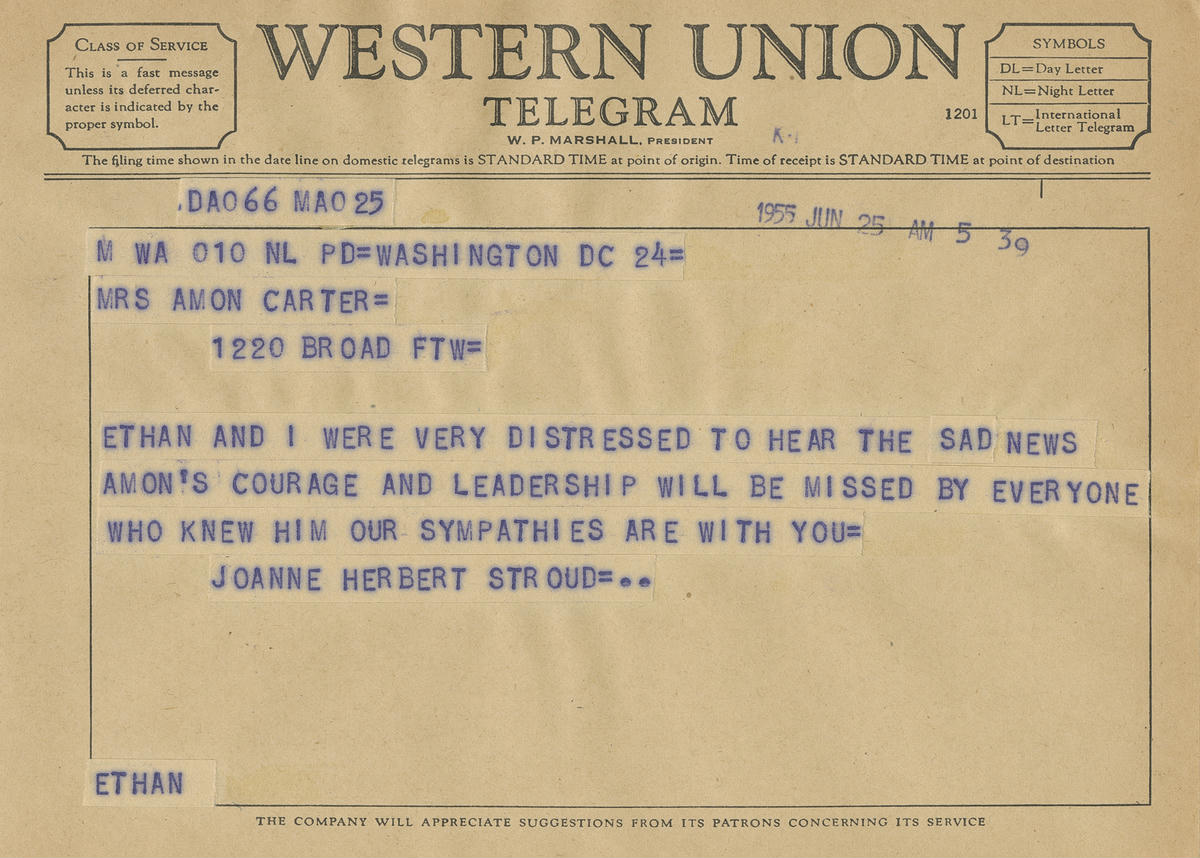 CLASS OF SERVICE
This is a fast message
unless its deferred char-
acter is indicated by the
proper symbol.
WESTERN UNION
TELEGRAM
W. P. MARSHALL, PRESIDENT
1201
SYMBOLS
DL=Day Letter
NL=Night Letter
LT=International Letter Telegram
The filing time shown in the date line on domestic telegrams is STANDARD TIME at point of origin. Time of receipt is STANDARD TIME at point of destination
.DA066 MA025
1955 JUN 25 AM 5 39
M WA 010 NL PD=WASHINGTON DC 24=
MRS AMON CARTER=
1220 BROAD FTW=
ETHAN AND I WERE VERY DISTRESSED TO HEAR THE SAD NEWS
AMON'S COURAGE AND LEADERSHIP WILL BE MISSED BY EVERYONE
WHO KNEW HIM OUR SYMPATHIES ARE WITH YOU=
JOANNE HERBERT STROUD=..
ETHAN
THE COMPANY WILL APPRECIATE SUGGESTIONS FROM ITS PATRONS CONCERNING ITS SERVICE